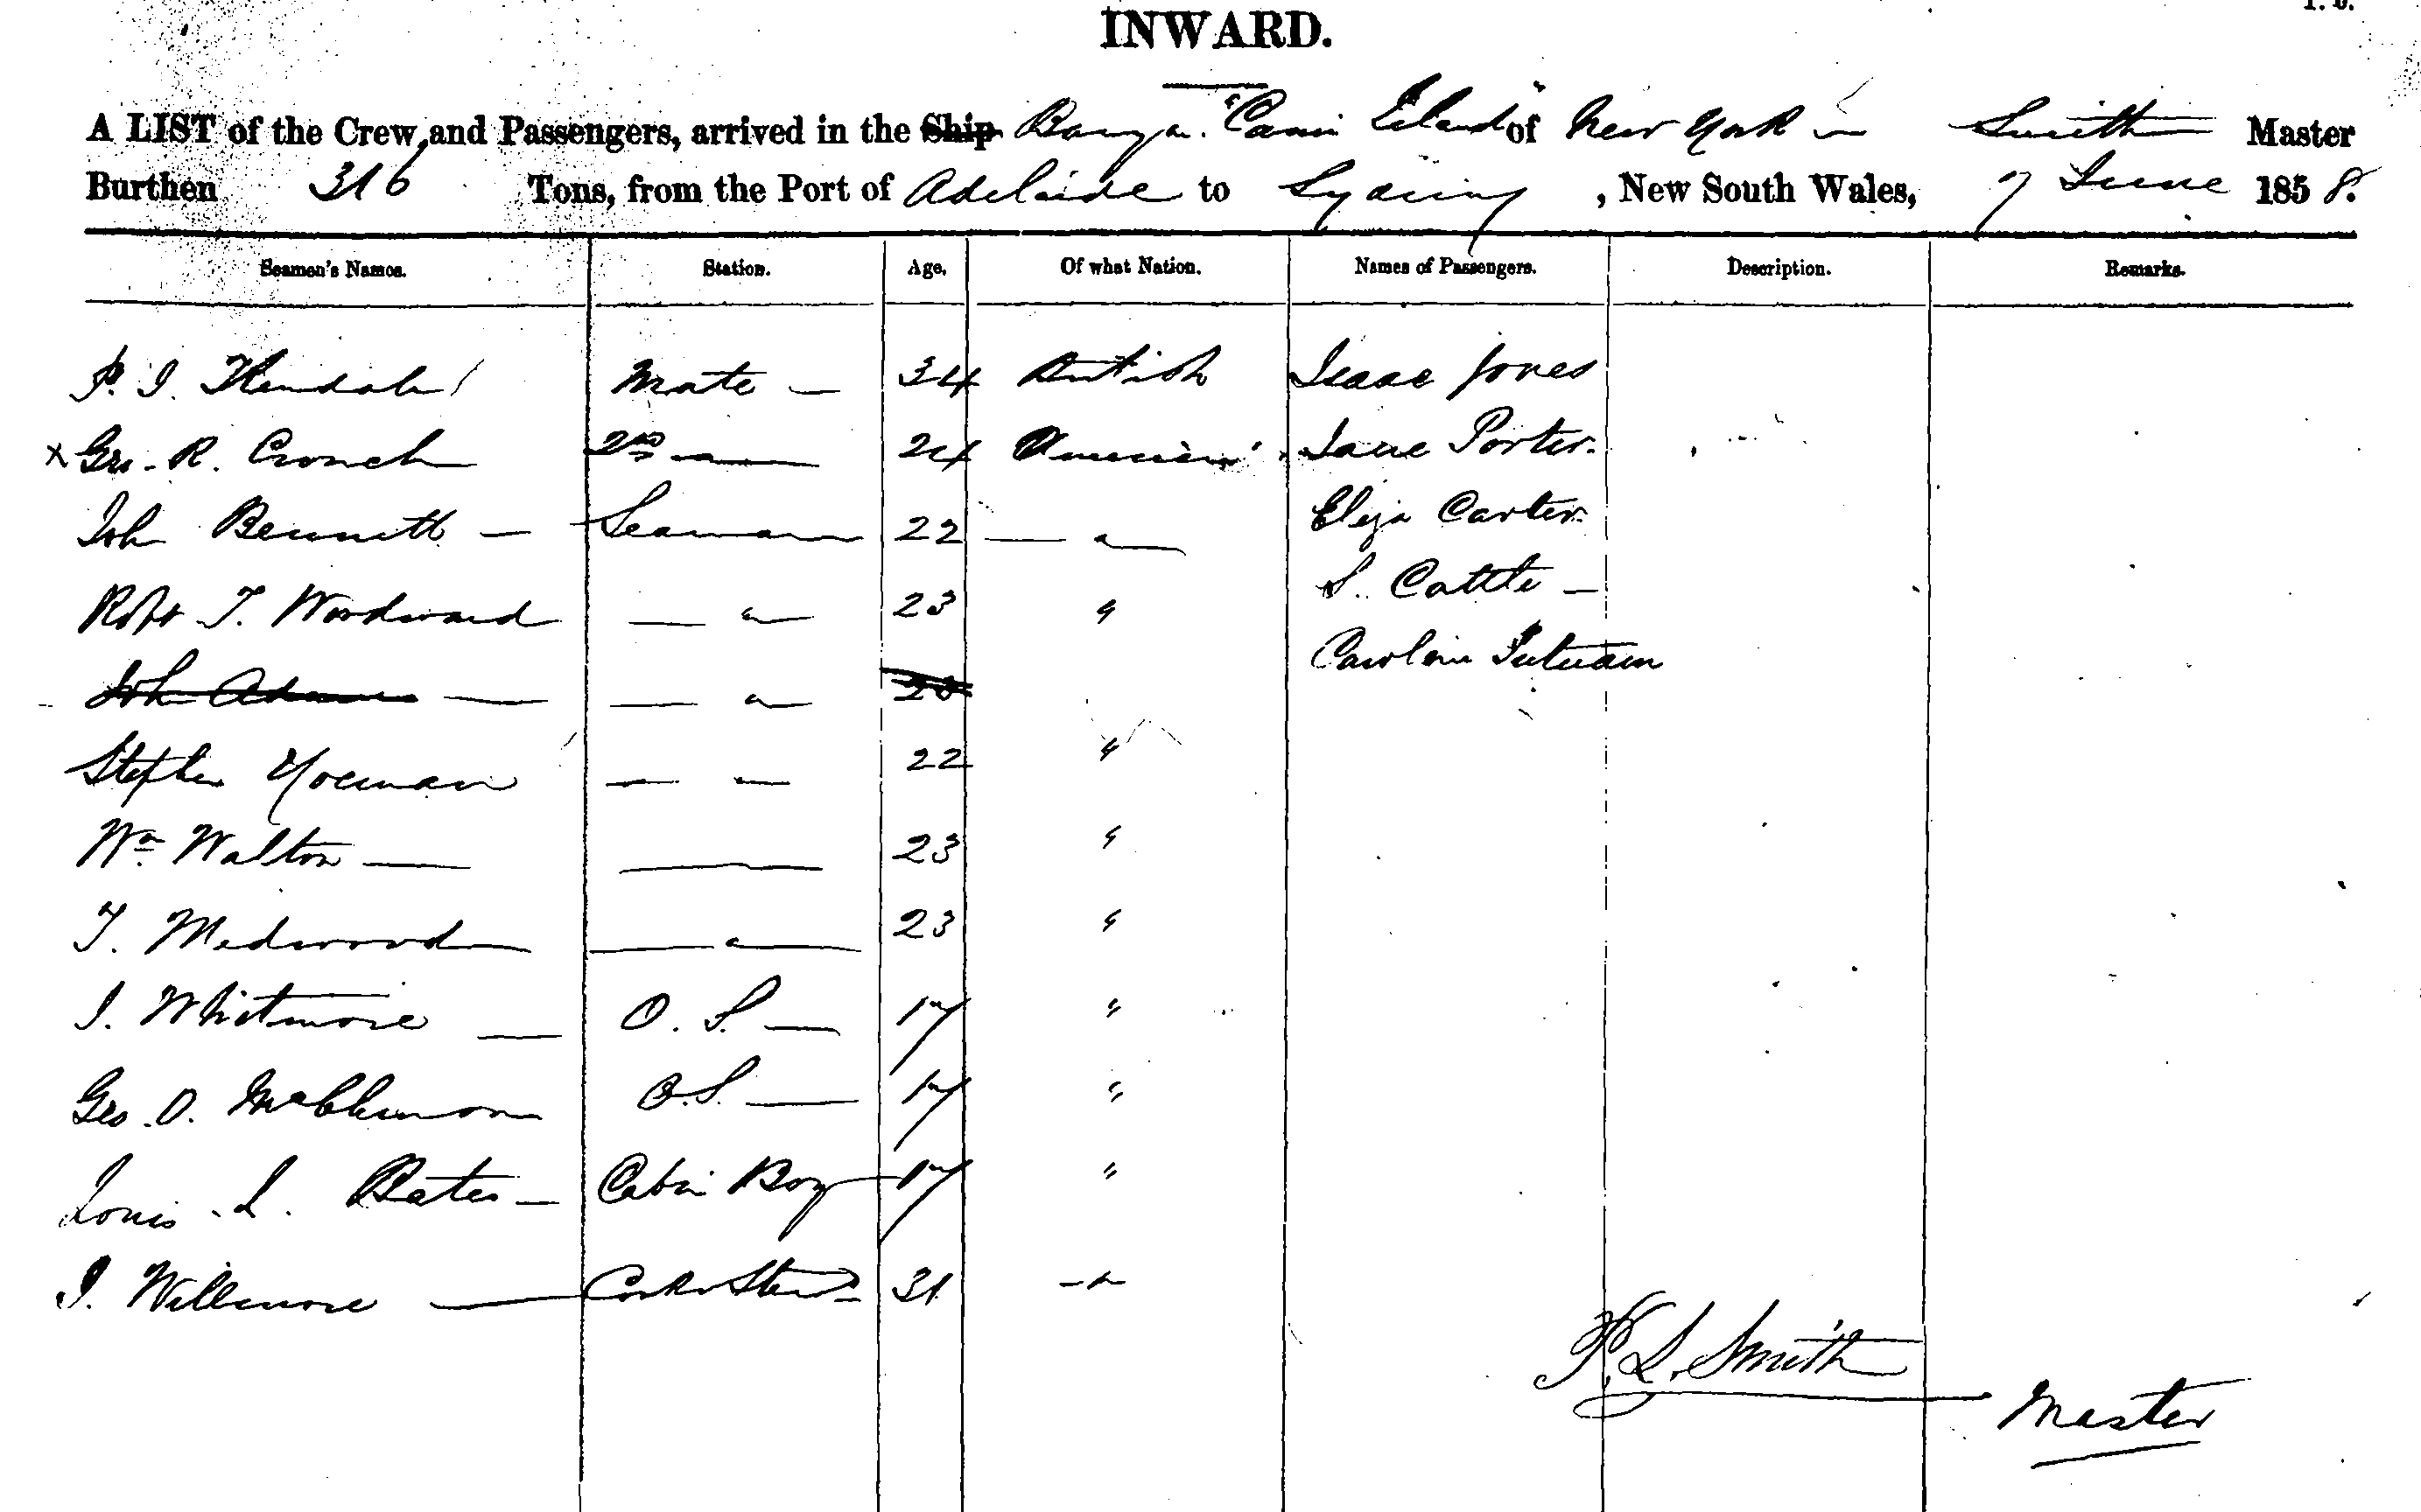 INWARD.
A LIST of the Crew and Passengers, arrived in the Ship "Island" of New York Smith Master
Burthen 316 Tons, from the Port of Adelaide to Sydney, New South Wales, 7 June 1858.
Seamen's Names. Station. Age. Of what Nation. Names of Passengers. Description. Remarks.
P. I. Mate — 34 British Isaac Jones
x Geo. R. Crouch 2nd " 24 American Jane Porter.
Joh Bennett — Seaman 22 — " Eliza Carter.
Robt T. Woodward — " 23 " S. Cattle —
Joh Adams — — " 23 Caroline Putnam
Stephen Yoeman — " 22 "
Wm Walton — — 23 "
T. Medwood — " 23 "
I. Whitmore — O. S. — 17 "
Geo. O. O.S. — 17 "
Louis L. Bates — Cabin Boy 17 "
I. Willmore — Cook & Stewd 31 — "
P. L. Smith
Master